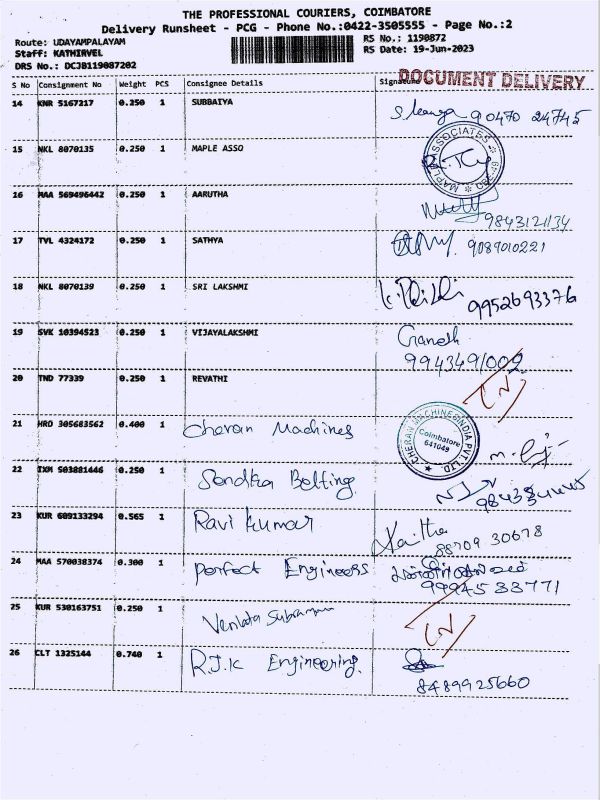 THE PROFESSIONAL COURIERS, COIMBATORE
Delivery Runsheet - PCG - Phone No.:0422-3505555 - Page No.:2
Route: UDAYAMPALAYAM RS No.: 1190872
Staff: KATHIRVEL RS Date: 19-Jun-2023
DRS No.: DCJB119087202
S No Consignment No Weight PCS Consignee Details Signature DOCUMENT DELIVERY
14 KNR 5167217 0.250 1 SUBBAIYA 90470 24745
15 NKL 8070135 0.250 1 MAPLE ASSO MAPLE ASSOCIATES
16 MAA 569496442 0.250 1 AARUTHA 9843121134
17 TVL 4324172 0.250 1 SATHYA 9089010221
18 NKL 8070139 0.250 1 SRI LAKSHMI 9952693376
19 SVK 10394523 0.250 1 VIJAYALAKSHMI Ganesh
9943491002
20 TND 77339 0.250 1 REVATHI
21 HRO 305683562 0.400 1 Cheran Machines CHERAN MACHINES INDIA PVT. LTD
Coimbatore
641049
22 IXM 503881446 0.250 1 Belting
23 KUR 609133294 0.565 1 Ravi Kumar 88709 30678
24 MAA 570038374 0.300 1 Perfect Engineers
99945 33771
25 KUR 530163751 0.250 1
26 CLT 1325144 0.740 1 R.J.K Engineering.
8489925660